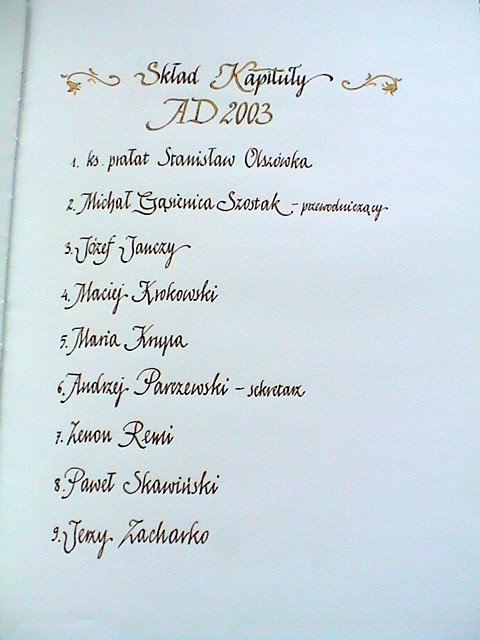 Skład Kapituły
AD 2003
1. ks. prałat Stanisław Olszówka
2. Michał Gąsienica Szostak - przewodniczący
3. Józef Janczy
4. Maciej Krokowski
5. Maria Krupa
6. Andrzej Parczewski - sekretarz
7. Zenon Remi
8. Paweł Skawiński
9. Jerzy Zacharko